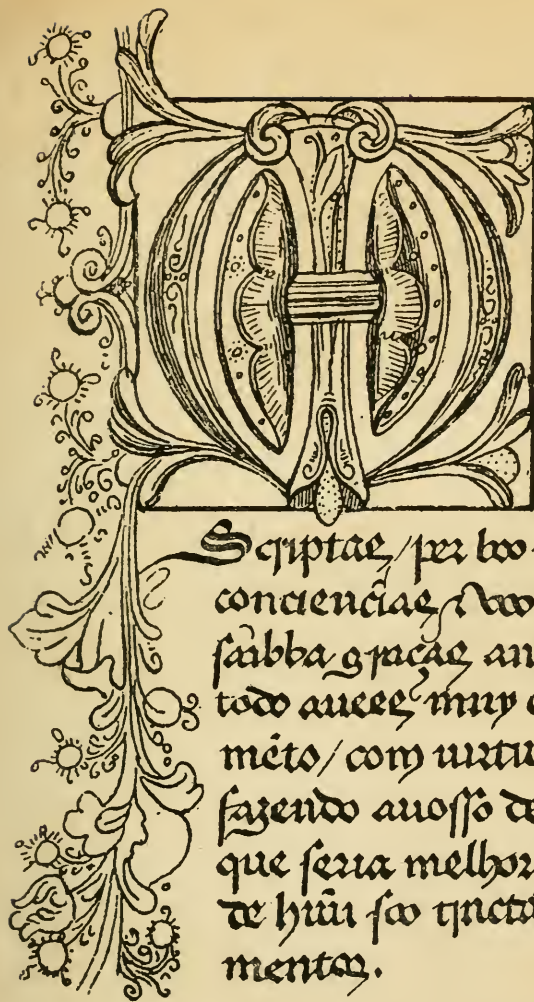 M
Scriptas, / per boo
conciencias, & voo
saibba graças an
todo auees, muy c
mēto / com uirtu
fazendo auosso de
que seria melhor
de hũu soo tracta
mentos.